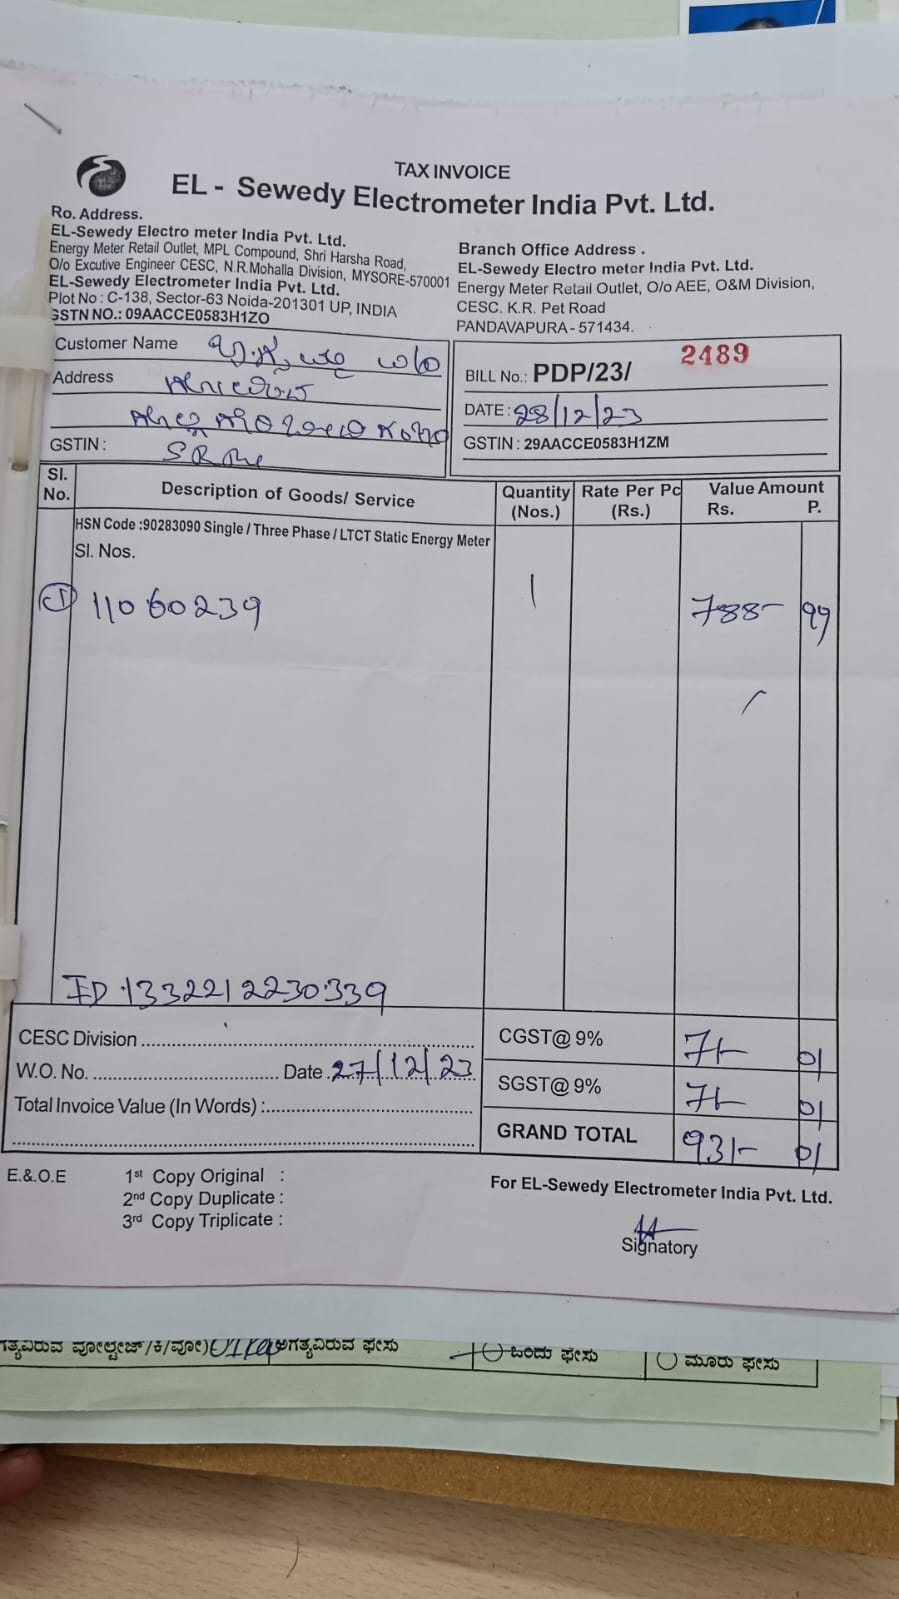 TAX INVOICE
EL - Sewedy Electrometer India Pvt. Ltd.
Ro. Address.
EL-Sewedy Electro meter India Pvt. Ltd.
Energy Meter Retail Outlet, MPL Compound, Shri Harsha Road,
O/o Excutive Engineer CESC, N.R.Mohalla Division, MYSORE-570001
EL-Sewedy Electrometer India Pvt. Ltd.
Plot No : C-138, Sector-63 Noida-201301 UP, INDIA
GSTN NO.: 09AACCE0583H1ZO
Branch Office Address .
EL-Sewedy Electro meter India Pvt. Ltd.
Energy Meter Retail Outlet, O/o AEE, O&M Division,
CESC. K.R. Pet Road
PANDAVAPURA - 571434.
Customer Name
Address
GSTIN :
BILL No.: PDP/23/ 2489
DATE : 28/12/23
GSTIN : 29AACCE0583H1ZM
Sl. No. Description of Goods/ Service Quantity (Nos.) Rate Per Pc (Rs.) Value Amount Rs. P.
HSN Code :90283090 Single / Three Phase / LTCT Static Energy Meter
Sl. Nos.
① 11060239 1 788- 99
ID.1332212230339
CESC Division
W.O. No. Date 27/12/23
Total Invoice Value (In Words) :
CGST@ 9% 71- 01
SGST@ 9% 71- 01
GRAND TOTAL 931- 01
E.&.O.E 1st Copy Original :
2nd Copy Duplicate :
3rd Copy Triplicate :
For EL-Sewedy Electrometer India Pvt. Ltd.
Signatory
ವೋಲ್ಟೇಜ್/ಕಿ/ವೋ) ಅಗತ್ಯವಿರುವ ಫೇಸು ಒಂದು ಫೇಸು ಮೂರು ಫೇಸು